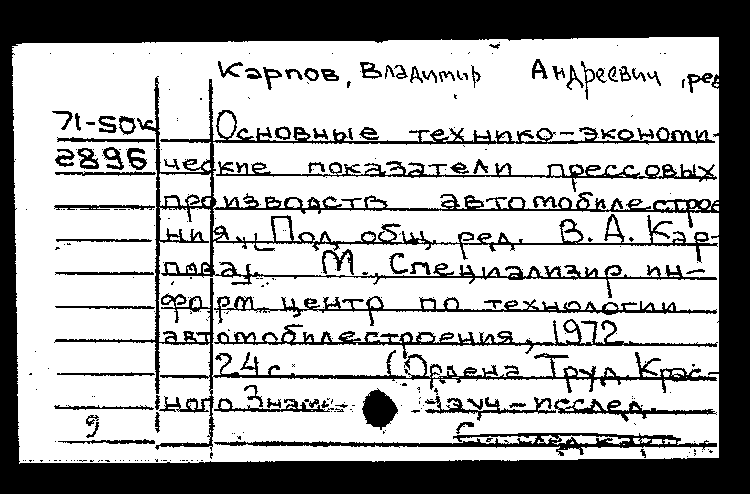 Карпов, Владимир Андреевич, ред
71-50к Основные технико-экономи-
2896 ческие показатели прессовых
производств автомобилестрое
ния. [Под общ. ред. В. А. Кар-
пова]. М., Специализир. ин-
форм. центр по технологии
автомобилестроения, 1972.
24 с. (Ордена Труд. Крас-
ного Знаме Науч-исслед.
9 См. след. карт.